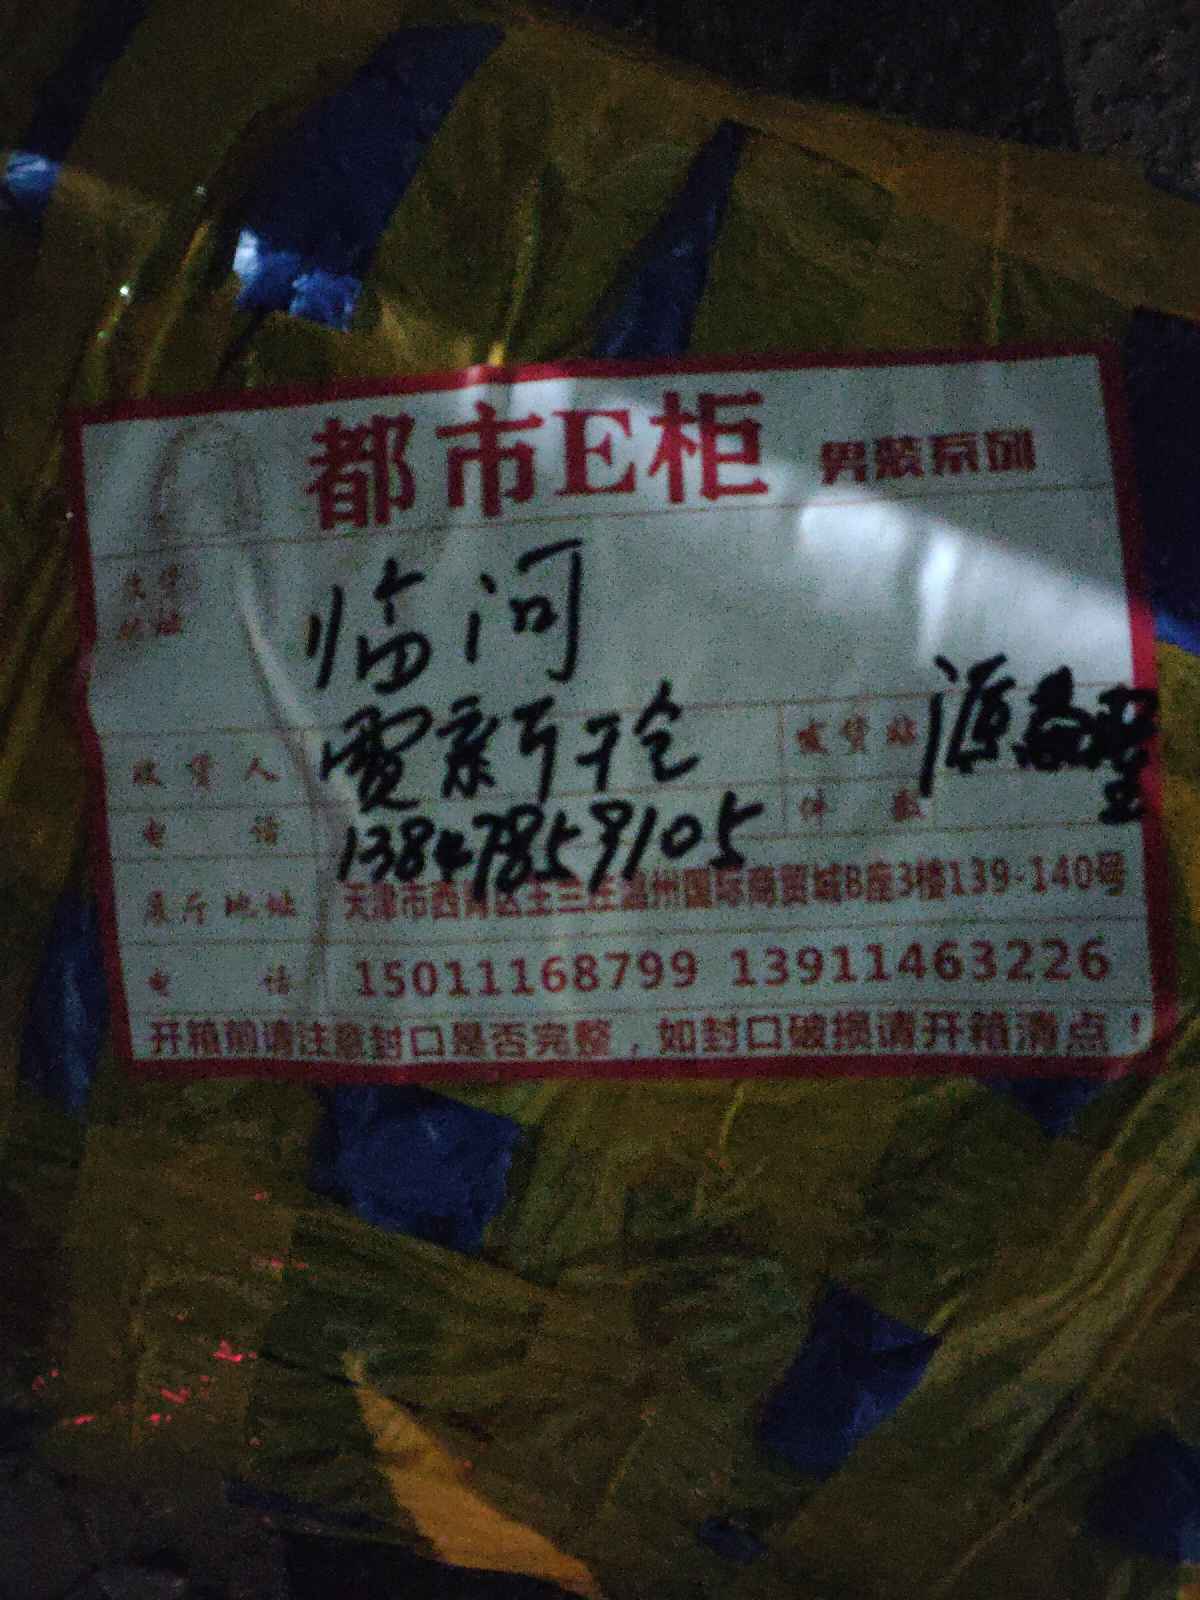 都市E柜 男装系列
发货
地址
临河
收货人
发货站 源
电话 13847859105
件数
展厅地址 天津市西青区王兰庄温州国际商贸城B座3楼139-140号
电话 15011168799 13911463226
开箱前请注意封口是否完整，如封口破损请开箱清点！